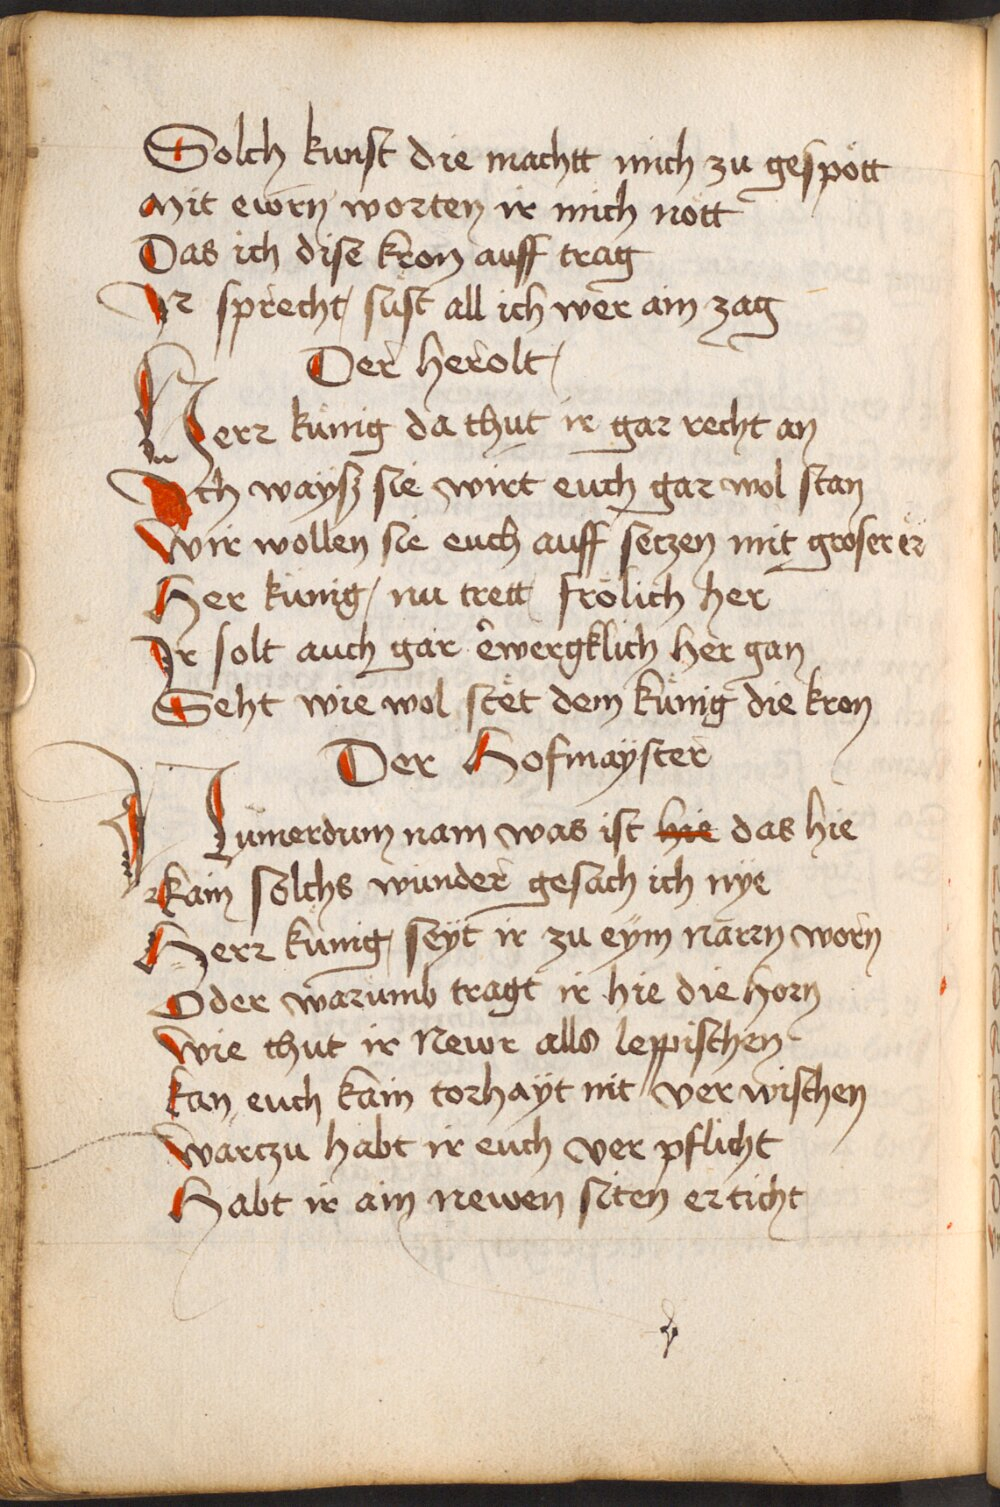 Solch kunst die machtt mich zu gespött
Mit ewrn worten ir mich nott
Das ich dise kron auff trag
Ir sprecht / süst all ich wer ain zag
Der herolt /
Herr künig da thut ir gar recht an
Ich wayß sie wirt euch gar wol stan
Wir wollen sie euch auff seczen mit groser er
Her künig / nu trett / frölich her
Ir solt auch gar ewergklich her gan
Seht wie wol stet dem künig die kron
Der Hofmayster
Numerdum nam was ist hie das hie
kain sölchs wunder gesach ich nye
Herr künig / seyt ir zu eym narrn worn
Oder warumb tragt ir hie die horn
Wie thut ir Newr allso leppischen
kan euch kain torhayt nit ver wischen
Warczu habt ir euch ver pflicht
Habt ir ain newen siten erticht